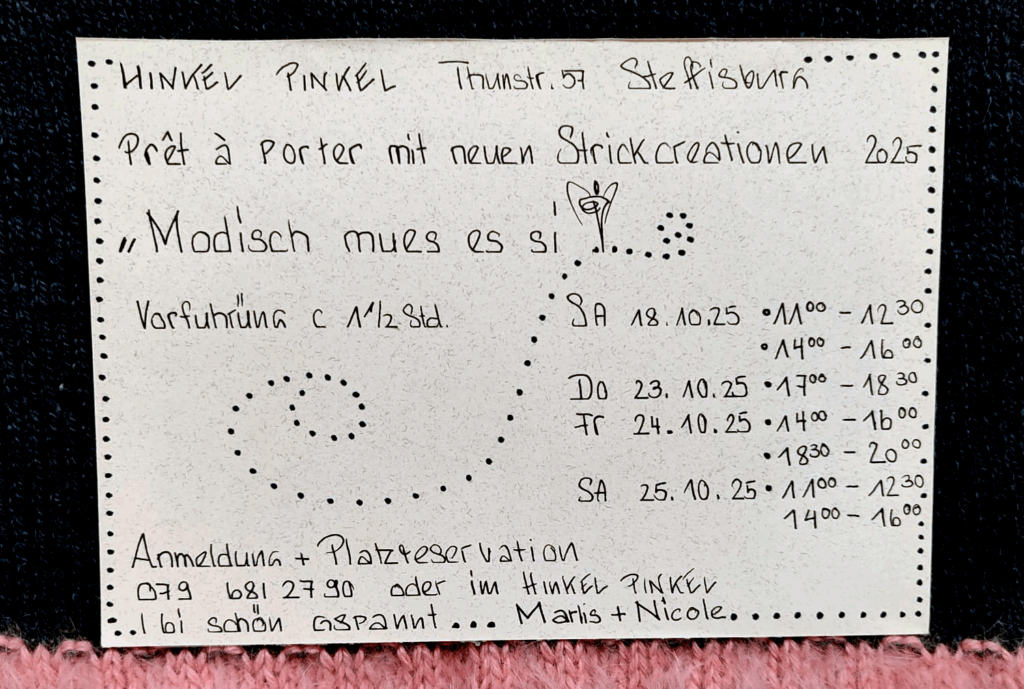 HINKEL PINKEL Thunstr. 57 Steffisburg
Prêt à porter mit neuen Strickcreationen 2025
„Modisch mues es si !
Vorfuhrüng c 1 1/2 Std.
SA 18.10.25 • 11⁰⁰ – 12³⁰
• 14⁰⁰ – 16⁰⁰
DO 23. 10. 25 • 17⁰⁰ – 18³⁰
Fr 24. 10. 25 • 14⁰⁰ – 16⁰⁰
• 18³⁰ – 20⁰⁰
SA 25. 10. 25 • 11⁰⁰ – 12³⁰
14⁰⁰ – 16⁰⁰
Anmeldung + Platzreservation
079 681 27 90 oder im HINKEL PINKEL
I bi schön gspannt ... Marlis + Nicole